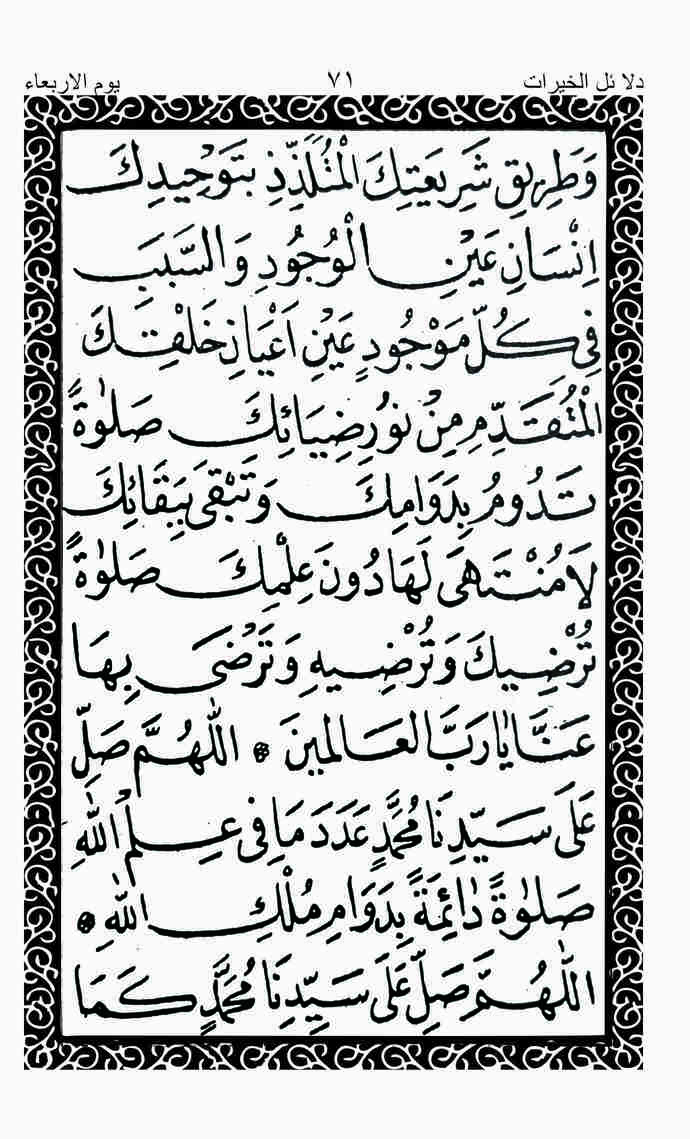 دلائل الخيرات ٧١ يوم الاربعاء
وَطَرِيقِ شَرِيعَتِكَ الْمُتَلَذِّذِ بِتَوْحِيدِكَ
اِنْسَانِ عَيْنِ الْوُجُودِ وَالسَّبَبِ
فِي كُلِّ مَوْجُودٍ عَيْنِ اَعْيَانِ خَلْقِكَ
الْمُتَقَدِّمِ مِنْ نُورِ ضِيَائِكَ صَلٰوةً
تَدُومُ بِدَوَامِكَ وَتَبْقَى بِبَقَائِكَ
لَا مُنْتَهَى لَهَا دُونَ عِلْمِكَ صَلٰوةً
تُرْضِيكَ وَتُرْضِيهِ وَتَرْضَى بِهَا
عَنَّا يَارَبَّ الْعَالَمِينَ * اَللّٰهُمَّ صَلِّ
عَلَى سَيِّدِنَا مُحَمَّدٍ عَدَدَ مَا فِى عِلْمِ اللّٰهِ
صَلٰوةً دٰائِمَةً بِدَوَامِ مُلْكِ اللّٰهِ *
اَللّٰهُمَّ صَلِّ عَلَى سَيِّدِنَا مُحَمَّدٍ كَمَا